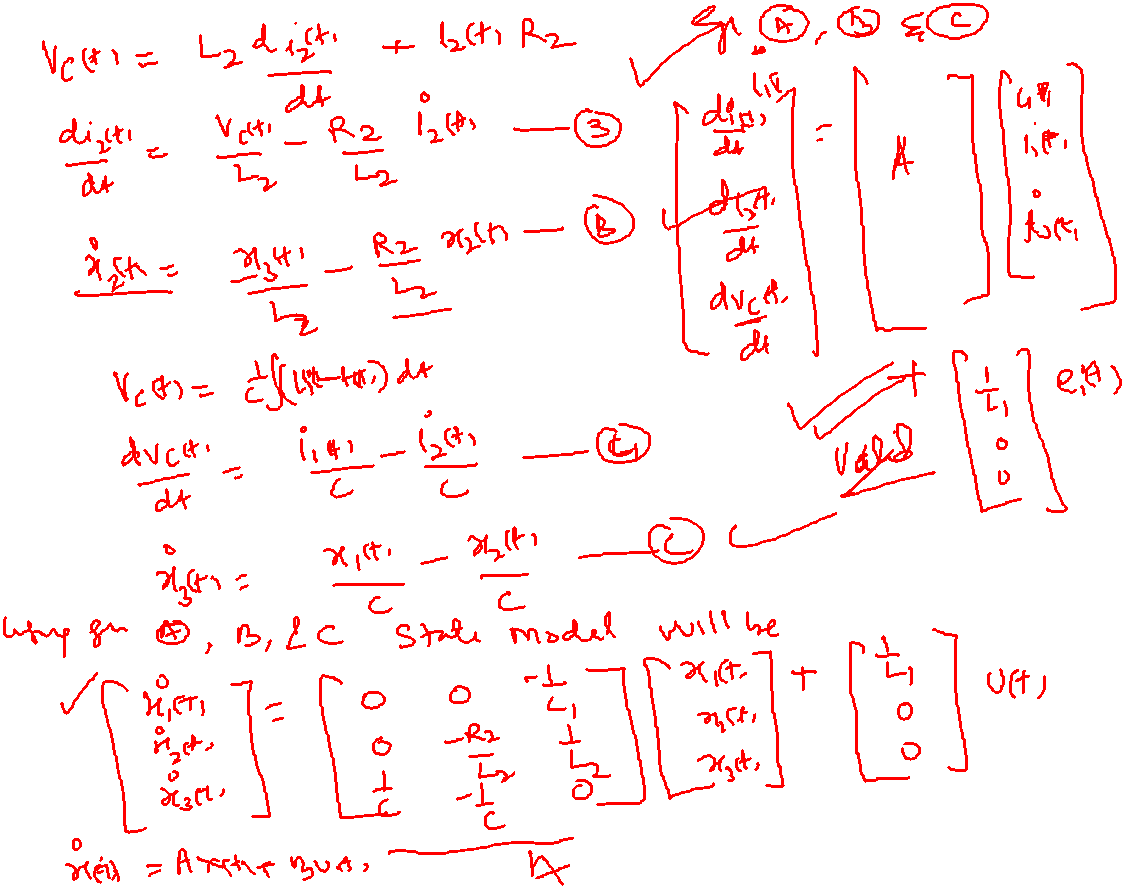 Vc(t) = L2 di2(t)/dt + i2(t) R2
di2(t)/dt = Vc(t)/L2 - R2/L2 i2(t) — (3)
ẋ2(t) = x3(t)/L2 - R2/L2 x2(t) — (B)
Vc(t) = 1/C ∫(i1(t) - i2(t)) dt
dvc(t)/dt = i1(t)/C - i2(t)/C — (C1)
ẋ3(t) = x1(t)/C - x2(t)/C — (C)
(A), (B) & (C)
[di1(t)/dt
di2(t)/dt
dvc(t)/dt] = [A] [i1(t)
i2(t)
+ [1/L1
0
0] ei(t)
Valid
Using eqn (A), B, & C State model will be
[ẋ1(t)
ẋ2(t)
ẋ3(t)] = [0 0 -1/L1
0 -R2/L2 1/L2
1/C -1/C 0] [x1(t)
x2(t)
x3(t)] + [1/L1
0
0] U(t)
ẋ(t) = AX(t) + BU(t)
A